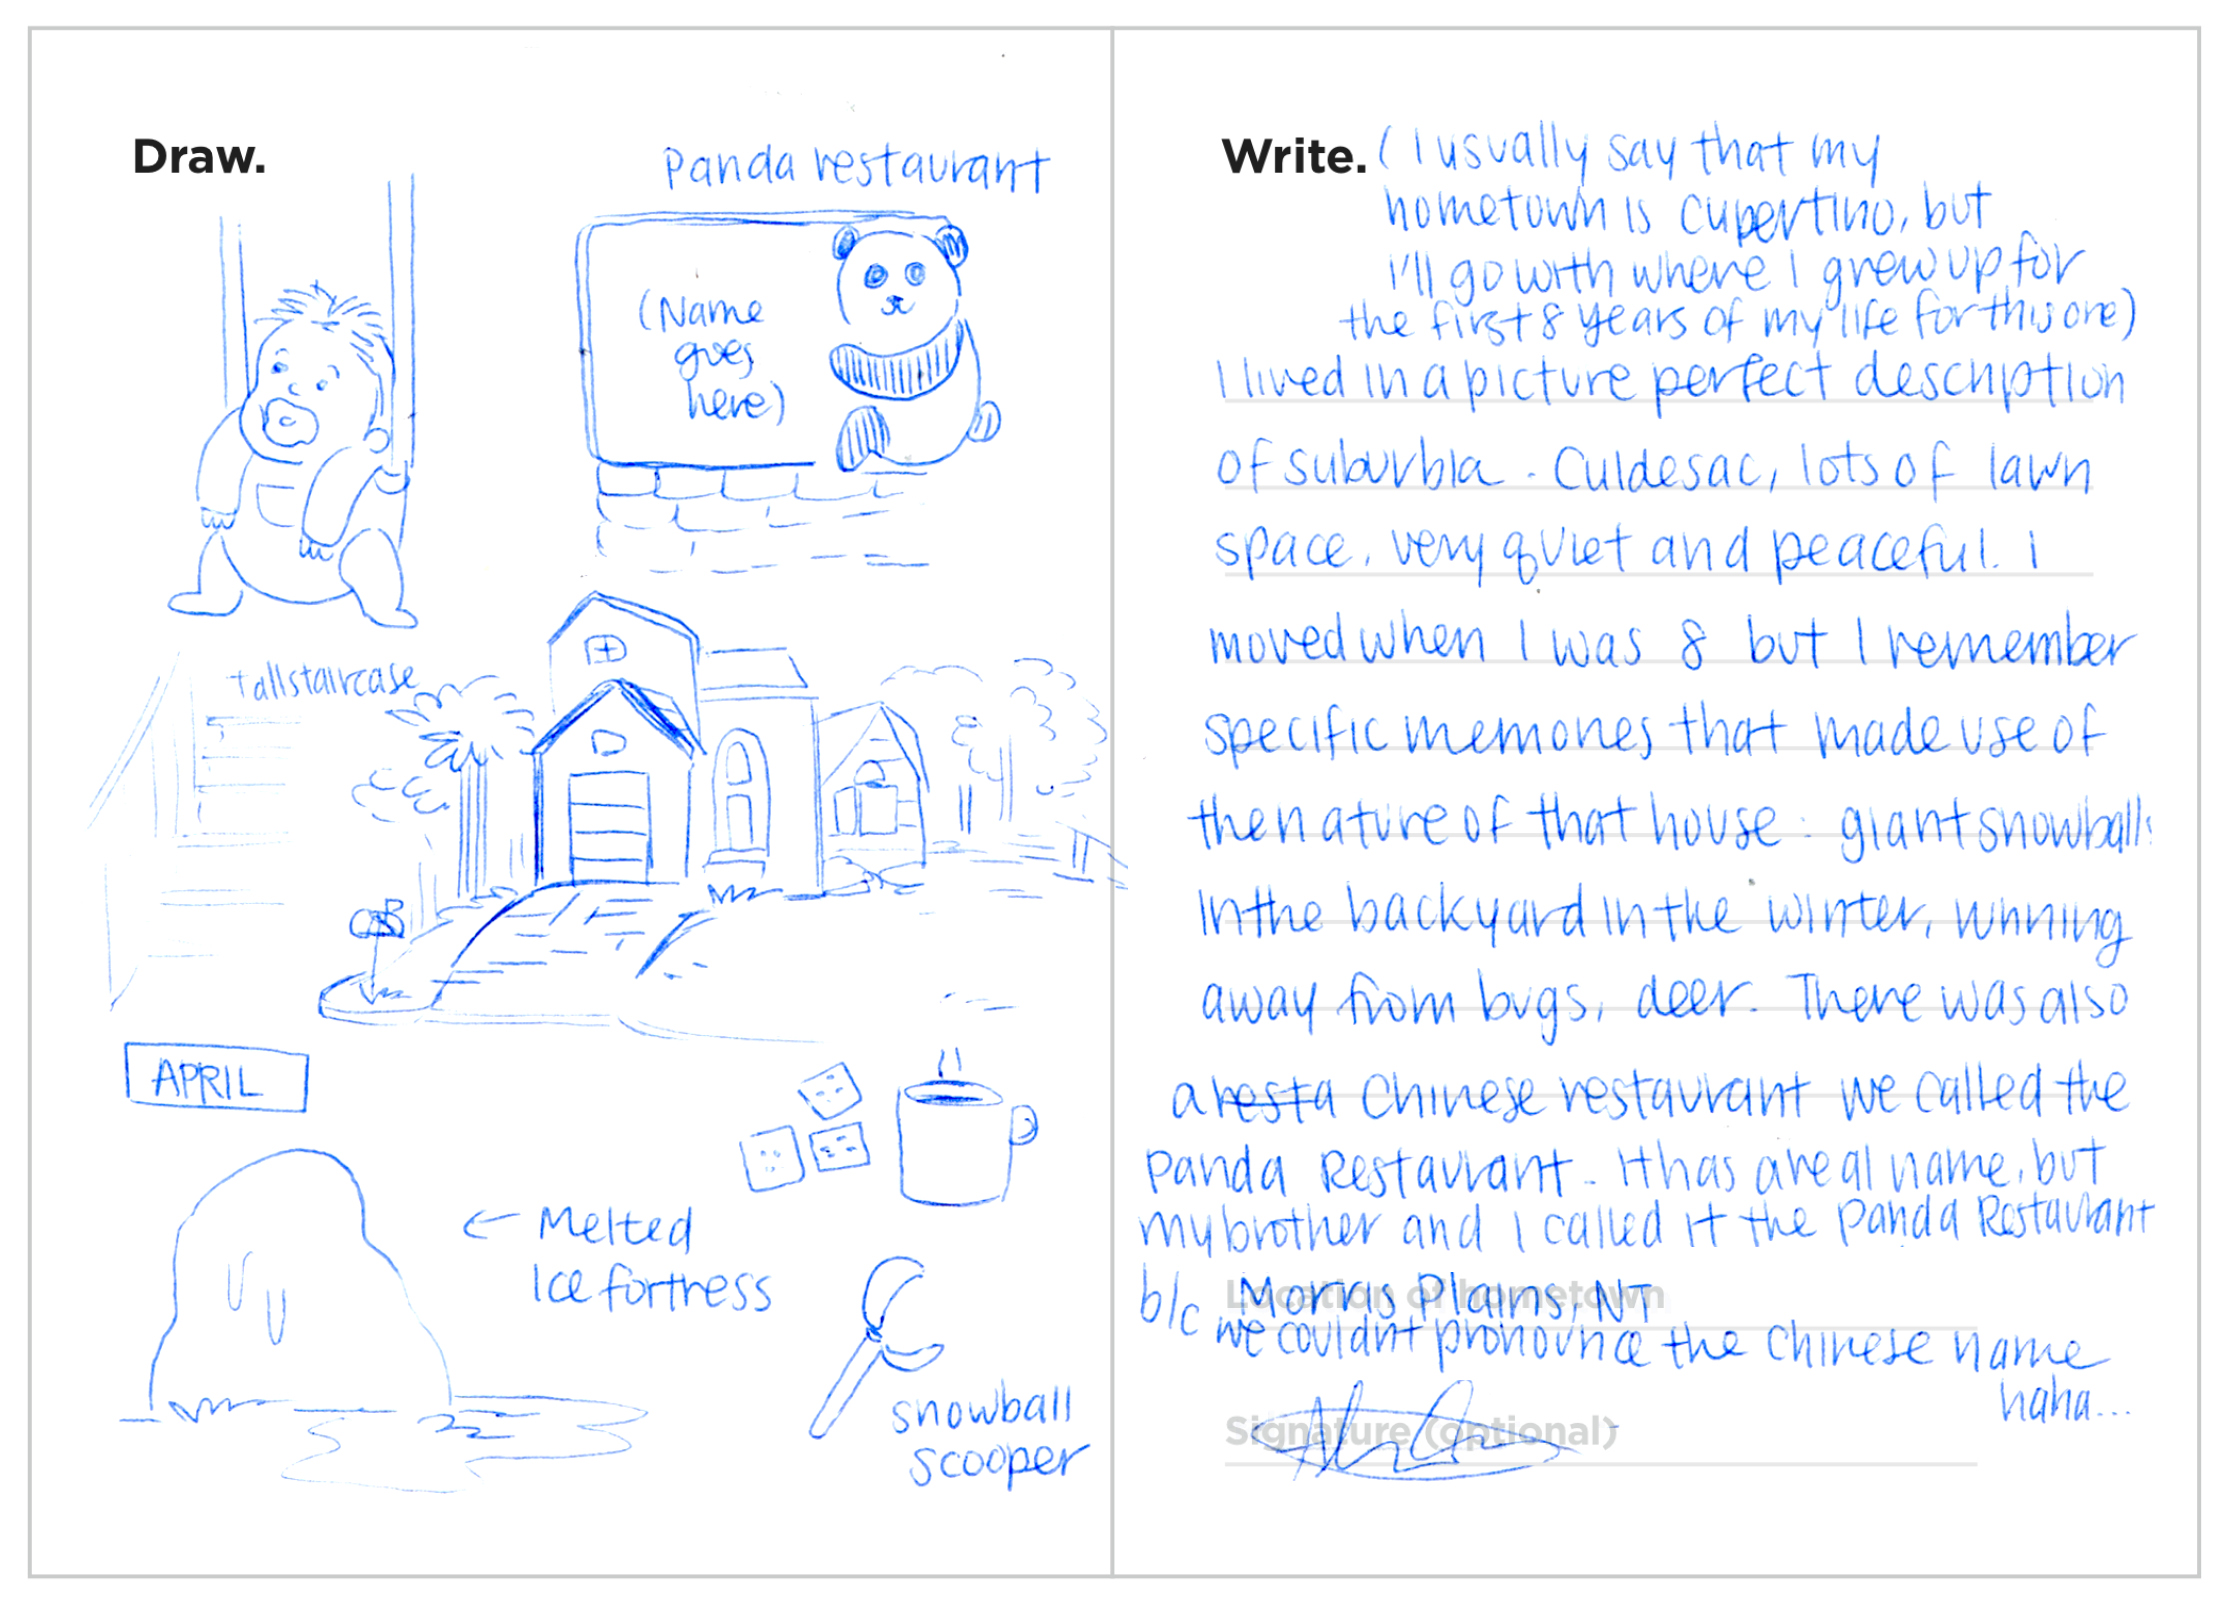 Draw.
Panda restaurant
(Name
goes
here)
tall staircase
APRIL
← Melted
Ice fortress
snowball
scooper
Write. (I usually say that my
hometown is Cupertino, but
I'll go with where I grew up for
the first 8 years of my life for this one)
I lived in a picture perfect description
of suburbia. Culdesac, lots of lawn
space, very quiet and peaceful. I
moved when I was 8 but I remember
specific memories that made use of
the nature of that house: giant snowballs
in the backyard in the winter, running
away from bugs, deer. There was also
a resta Chinese restaurant we called the
Panda Restaurant. It has a real name, but
my brother and I called it the Panda Restaurant
b/c
Location of hometown
Morris Plains, NJ
we couldnt pronounce the Chinese name
haha...
Signature (optional)